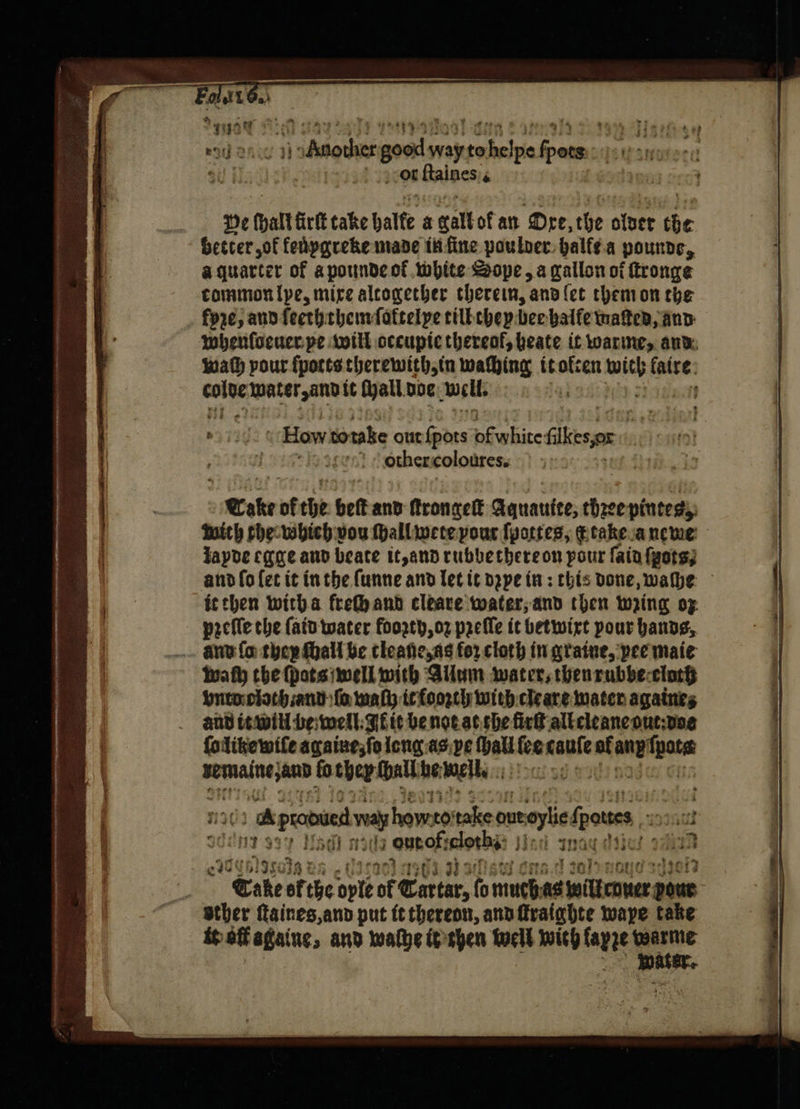 Fol. 16.
Another good way to helpe spots
or staines.
Ye shall first take halfe a gall of an Oxe, the older the
better, of fenygreke made in fine poulder halfe a pounde,
a quarter of a pounde of white Sope, a gallon of stronge
common lye, mixe altogether therein, and set them on the
fyre, and seeth them softelye till they bee halfe wasted, and
whensoeuer ye will occupie thereof, heate it warme, and
wash your spotts therewith, in washing it often with faire
colde water, and it shall doe well.
How to take out spots of white silkes, or
other coloures.
Take of the best and strongest Aquauite, three pintes,
with the which you shall wete your spottes, & take a newe
layde egge and beate it, and rubbe thereon your said spots,
and so set it in the sunne and let it drye in: this done, washe
it then with a fresh and cleare water, and then wring or
presse the said water foorth, or presse it betwixt your hands,
and so they shall be cleane, as for cloth in graine, yee maie
wash the spots well with Allum water, then rubbe cloth
vnto cloth, and so wash it foorth with cleare water againe,
and it will be well. If it be not at the first all cleane out: doe
so likewise againe, so long as ye shall see cause of any spots
remaine, and so they shall be well.
A prooued way how to take out oylie spottes
out of cloths:
Take of the oyle of Tartar, so much as will couer your
other staines, and put it thereon, and straighte waye take
it off againe, and washe it then well with fayre warme
water.